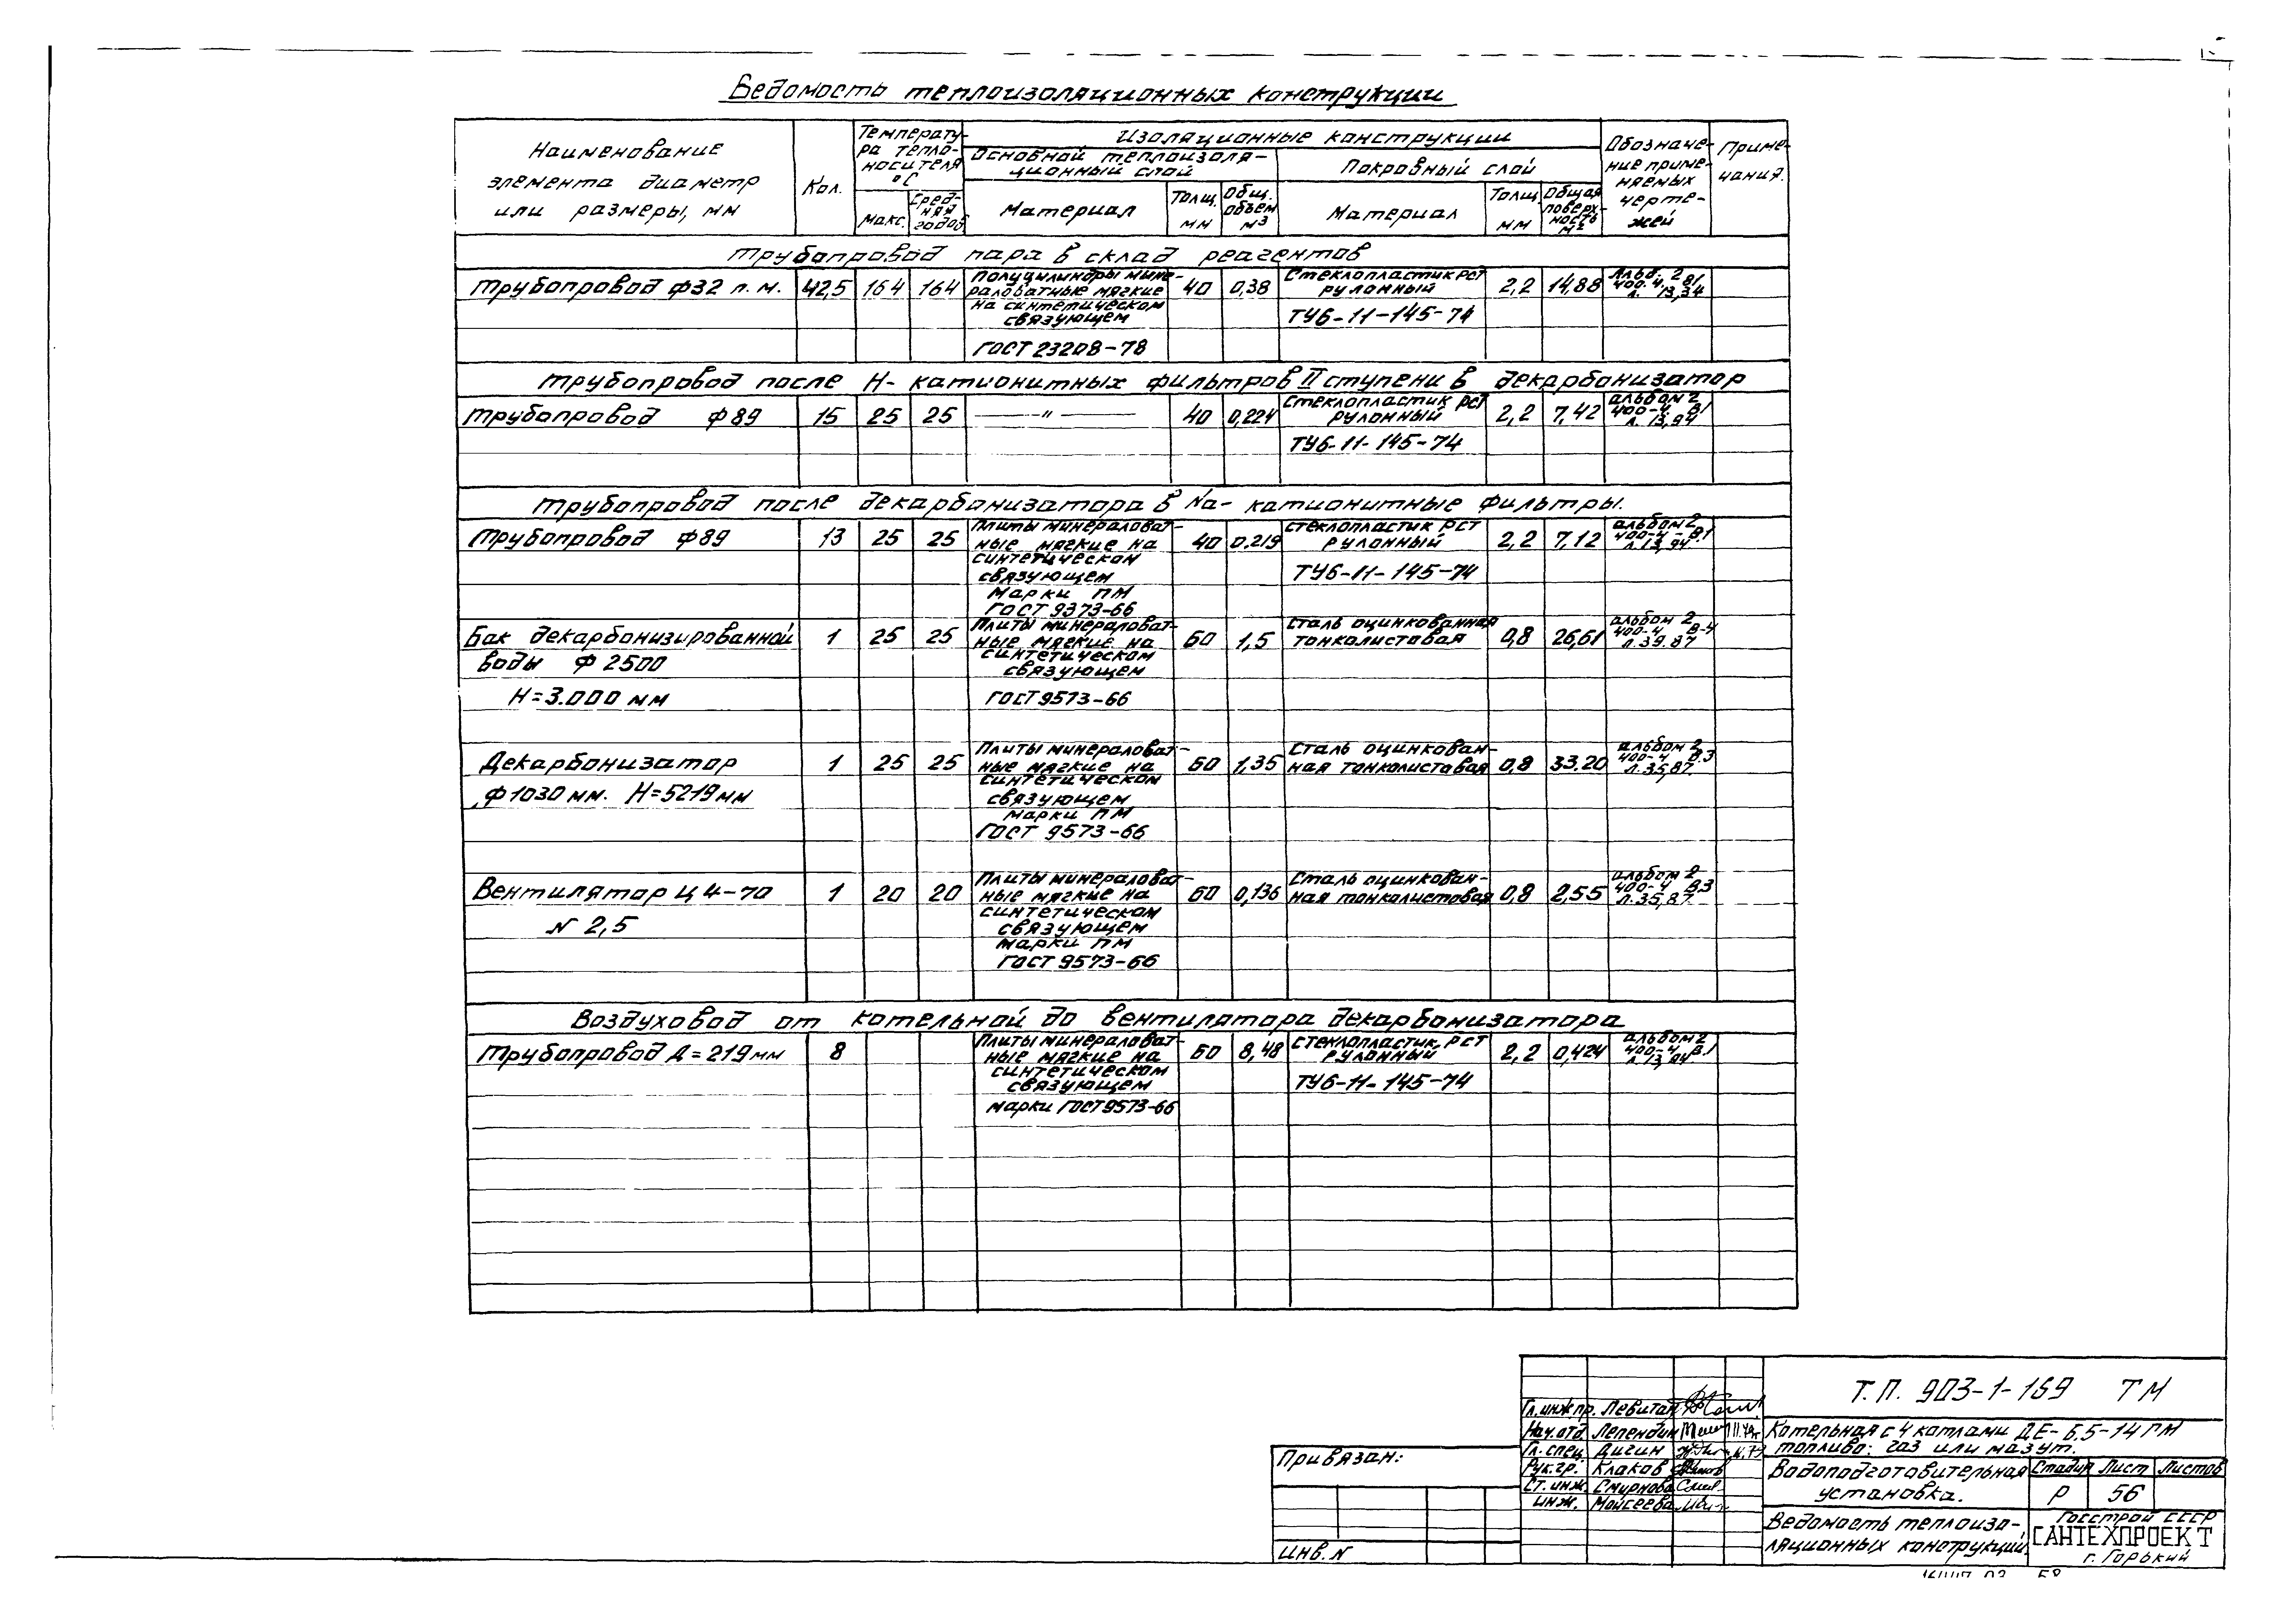 Ведомость теплоизоляционных конструкции
Наименование элемента диаметр или размеры, мм
Кол.
Температура теплоносителя °С
Макс.
Средняя годов.
Изоляционные конструкции
Основной теплоизоляционный слой
Материал
Толщ. мм
Общ. объем м3
Покровный слой
Материал
Толщ мм
Общая поверхность м2
Обозначение применяемых чертежей
Примечания.
Трубопровод пара в склад реагентов
Трубопровод ф32 п.м. 42,5 164 164 Полуцилиндры минераловатные мягкие на синтетическом связующем ГОСТ 23208-78 40 0,38 Стеклопластик РСТ рулонный ТУ6-11-145-74 2,2 14,88 Альб. 2 400-4, В1 л. 13,34
Трубопровод после Н-катионитных фильтров II ступени в декарбонизатор
Трубопровод ф89 15 25 25 — " — 40 0,224 Стеклопластик РСТ рулонный ТУ6-11-145-74 2,2 7,42 альбом 2 400-4 В1 л. 13,94
Трубопровод после декарбонизатора в Na-катионитные фильтры.
Трубопровод ф89 13 25 25 Плиты минераловатные мягкие на синтетическом связующем марки ПМ ГОСТ 9373-66 40 0.219 Стеклопластик РСТ рулонный ТУ6-11-145-74 2,2 7,12 альбом 2 400-4-В.1 л.13,94
Бак декарбонизированной воды ф 2500 Н=3.000 мм 1 25 25 Плиты минераловатные мягкие на синтетическом связующем ГОСТ 9573-66 60 1,5 Сталь оцинкованная тонколистовая 0,8 26,61 альбом 2 400-4 В-4 л.39.87
Декарбонизатор ф1030 мм. Н=5219 мм 1 25 25 Плиты минераловатные мягкие на синтетическом связующем марки ПМ ГОСТ 9573-66 60 1,35 Сталь оцинкованная тонколистовая 0,8 33.20 альбом 2 400-4 В.3 л.35,87.
Вентилятор Ц 4-70 N 2,5 1 20 20 Плиты минераловатные мягкие на синтетическом связующем марки ПМ ГОСТ 9573-66 60 0,136 Сталь оцинкованная тонколистовая 0,8 2,55 альбом 2 400-4 В.3 л.35,87
Воздуховод от котельной до вентилятора декарбонизатора
Трубопровод Д=219 мм 8 Плиты минераловатные мягкие на синтетическом связующем марки ГОСТ 9573-66 60 8,48 Стеклопластик РСТ рулонный ТУ6-11-145-74 2,2 0,424 альбом 2 400-4 В.1 л.13,94
Т.П. 903-1-159 ТМ
Гл.инж.пр. Левитан
Нач.отд. Лепендин
Гл.спец. Дигин
Рук.гр. Клаков
Ст.инж. Смирнова
инж. Моисеева
Котельная с 4 котлами ДЕ-6,5-14ГМ
топливо: газ или мазут.
Водоподготовительная установка.
Стадия Лист Листов
Р 56
Ведомость теплоизоляционных конструкций.
Госстрой СССР
САНТЕХПРОЕКТ
г. Горький
Привязан:
Инв. N